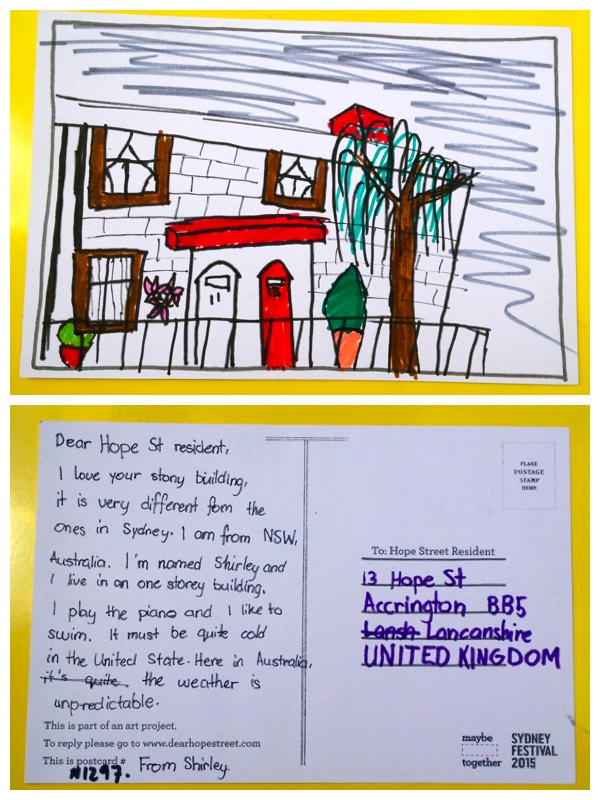 Dear Hope St resident,
I love your stony building,
it is very different fom the
ones in Sydney. I am from NSW,
Australia. I'm named Shirley and
I live in an one storey building.
I play the piano and I like to
swim. It must be quite cold
in the United State. Here in Australia,
it's quite the weather is
unpredictable.
This is part of an art project.
To reply please go to www.dearhopestreet.com
This is postcard #
#1297. From Shirley.
PLACE
POSTAGE
STAMP
HERE
To: Hope Street Resident
13 Hope St
Accrington BB5
Lansh Lancanshire
UNITED KINGDOM
maybe
together
SYDNEY
FESTIVAL
2015